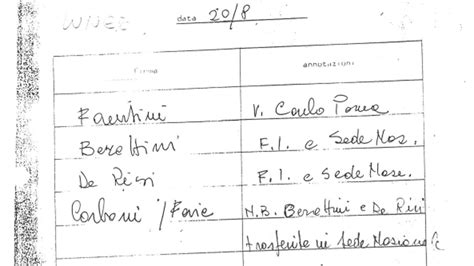 data 20/8
firma annotazioni
Faentini V. Carlo Poma
Berettini F.I. e Sede Mas.
De Risi F.I. e Sede Mase.
Carboni / N.B. Berettini e De Risi
trasferite in Sede